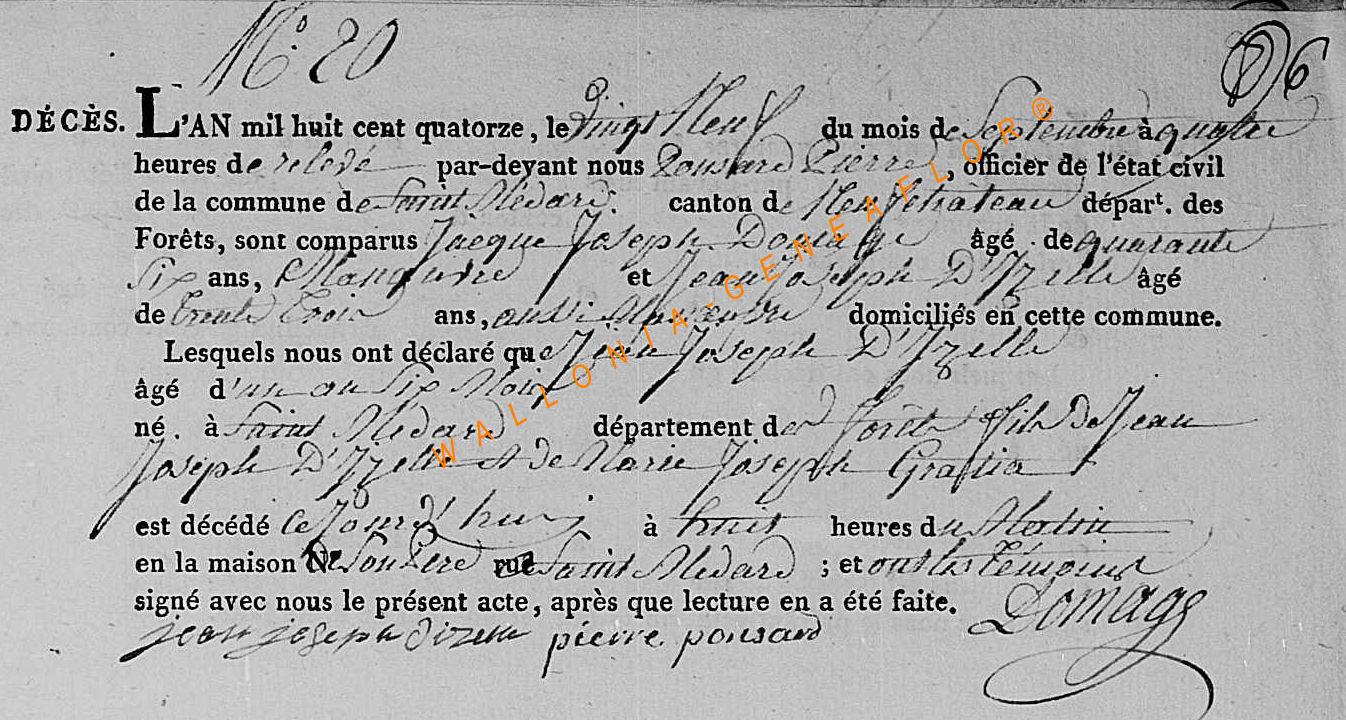 N.° 20
D6
DÉCÈS. L'AN mil huit cent quatorze, le vingt Neuf du mois de Septembre à quatre
heures de relevé par-devant nous Ponsard Pierre, officier de l'état civil
de la commune de Saint Médard. canton de Neufchateau départ. des
Forêts, sont comparus Jacque Joseph Domage âgé de quarante
Six ans, Manœuvre et Jean Joseph D'Izelle âgé
de trente trois ans, aussi Manœuvre domiciliés en cette commune.
Lesquels nous ont déclaré que Jean Joseph D'Izelle
âgé d'un an Six Mois
né à Saint Médard département des forêts fils de Jean
Joseph D'Izelle et de Marie Joseph Gratia
est décédé ce Jourd'hui à huit heures du Matin
en la maison de Son Pere rue de Saint Médard ; et ont les témoins
signé avec nous le présent acte, après que lecture en a été faite.
jean joseph dizelle pierre ponsard Domage
WALLONIA-GENEAFLOR®